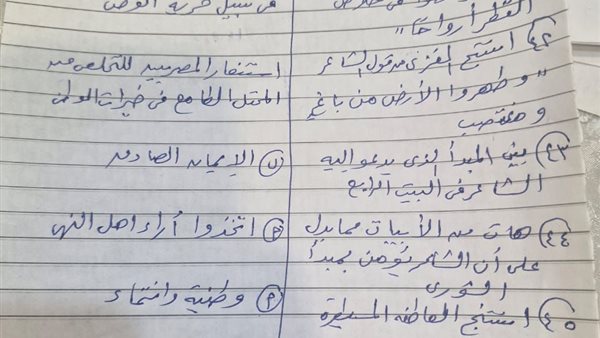 في سبيل حرية الوطن
القطر أرواحا"
٤٢) استنتج المغزى من قول الشاعر
استنفار المصريين للتخلص من
"وطهروا الأرض من باغٍ
المحتل الطامع في خيرات الوطن
ومغتصب
٤٣) بين المبدأ الذى يدعو إليه
الإيمان الصادق
الشاعر فى البيت الرابع
٤٤) هات من الأبيات مما يدل
اتخذوا أراء اهل النهى
على أن الشاعر يؤمن بمبدأ
الشورى
وطنية وانتماء
٤٥) استنتج العاطفة المسيطرة